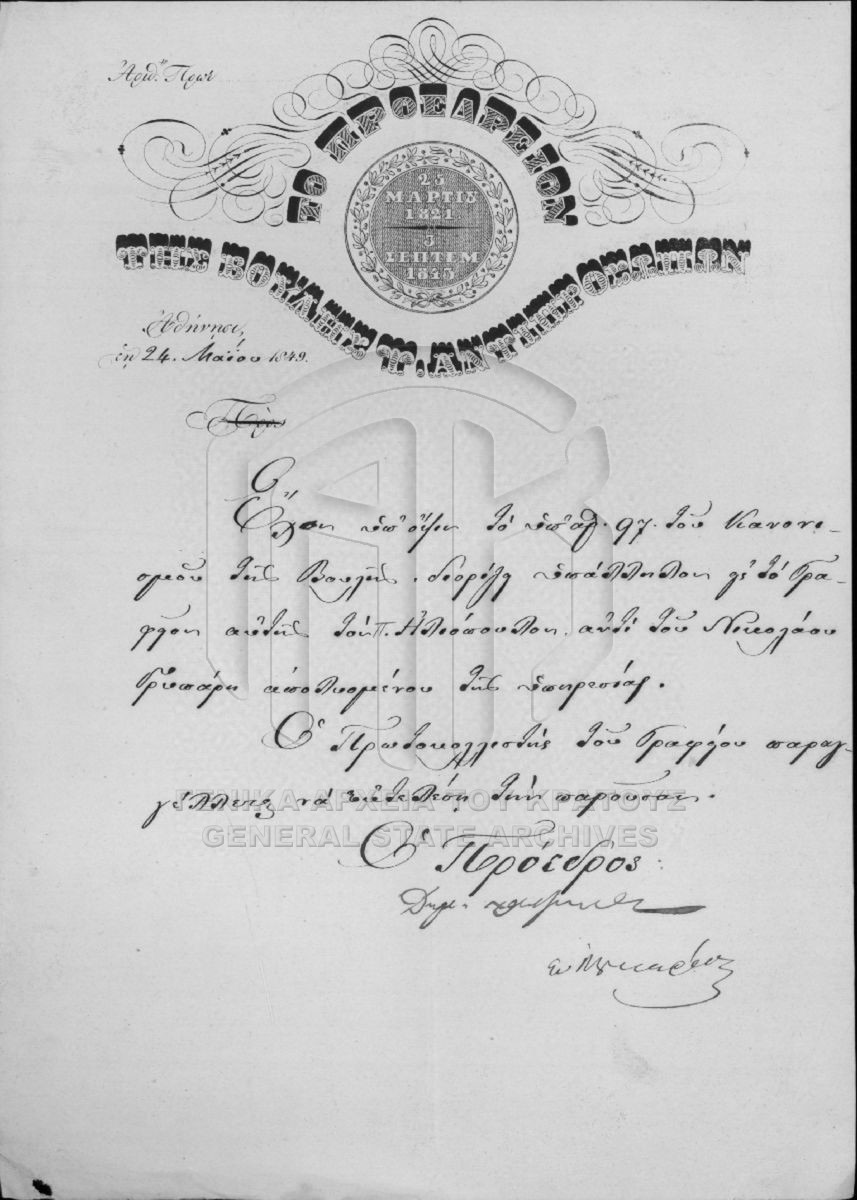 Ἀριθ. Πρωτ
ΤΟ ΠΡΟΕΔΡΕΙΟΝ
ΤΗΣ ΒΟΥΛΗΣ Τ. ΑΝΤΙΠΡΟΣΩΠΩΝ
25
ΜΑΡΤΙΣ
1821
3
ΣΕΠΤΕΜ
1843
Ἀθήνησι,
τῇ 24. Μαΐου 1849.
Πρὸς
Ἔχων ὑπ' ὄψιν τὸ ὑπ' ἀρ. 97. τοῦ Κανονι-
σμοῦ τῆς Βουλῆς, διορίζω ὑπάλληλον εἰς τὸ Γρα-
φεῖον αὐτῆς τὸν Π. Ηλιόπουλον, ἀντὶ τοῦ Νικολάου
Γρυπάρη ἀπολυομένου τῆς ὑπηρεσίας.
Ὁ Πρωτοκολλιστὴς τοῦ Γραφείου παραγ-
γέλλεται νὰ ἐκτελέσῃ τὴν παροῦσαν.
ΓΕΝΙΚΑ ΑΡΧΕΙΑ ΤΟΥ ΚΡΑΤΟΥΣ
GENERAL STATE ARCHIVES
Ὁ Πρόεδρος